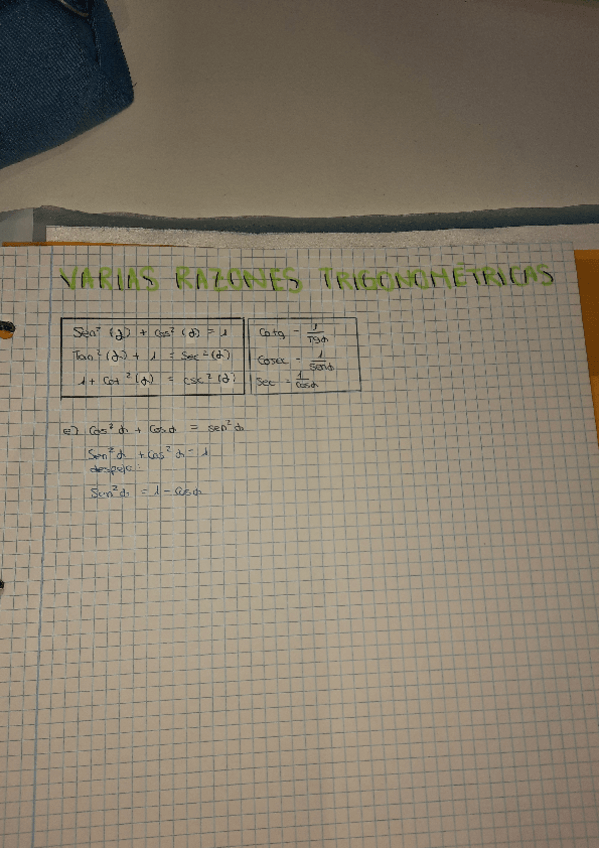 VARIAS RAZONES TRIGONOMÉTRICAS
Sen² (α) + Cos² (α) = 1
Tan² (α) + 1 = Sec² (α)
1 + Cot² (α) = csc² (α)
Cotg = 1/Tgα
Cosec = 1/Senα
Sec = 1/Cosα
e) Cos²α + Cosα = sen²α
Sen²α + Cos²α = 1
despeje:
Sen²α = 1 - Cosα